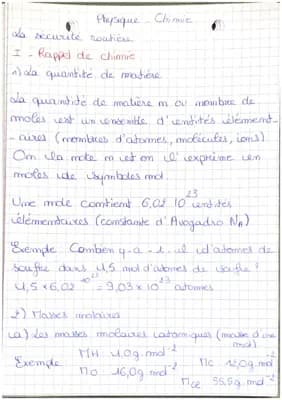 Physique - Chimie
La sécurité routière
I - Rappel de chimie
1) La quantité de matière
La quantité de matière n ou nombre de
moles est un ensemble d'entités élément-
aires (nombres d'atomes, molécules, ions)
On la note n et on l'exprime en
moles de symboles mol.
Une mole contient 6,02 10^23 entités
élémentaires (constante d'Avogadro NA)
Exemple Combien y-a-t-il d'atomes de
soufre dans 1,5 mol d'atomes de soufre ?
1,5 × 6,02 10^23 = 9,03 × 10^23 atomes
2) Masses molaires
a) Les masses molaires atomiques (masse d'une
mol)
Exemple MH 1,0 g.mol^-1 MC 12,0 g.mol^-1
MO 16,0 g.mol^-1 MCl 35,5 g.mol^-1